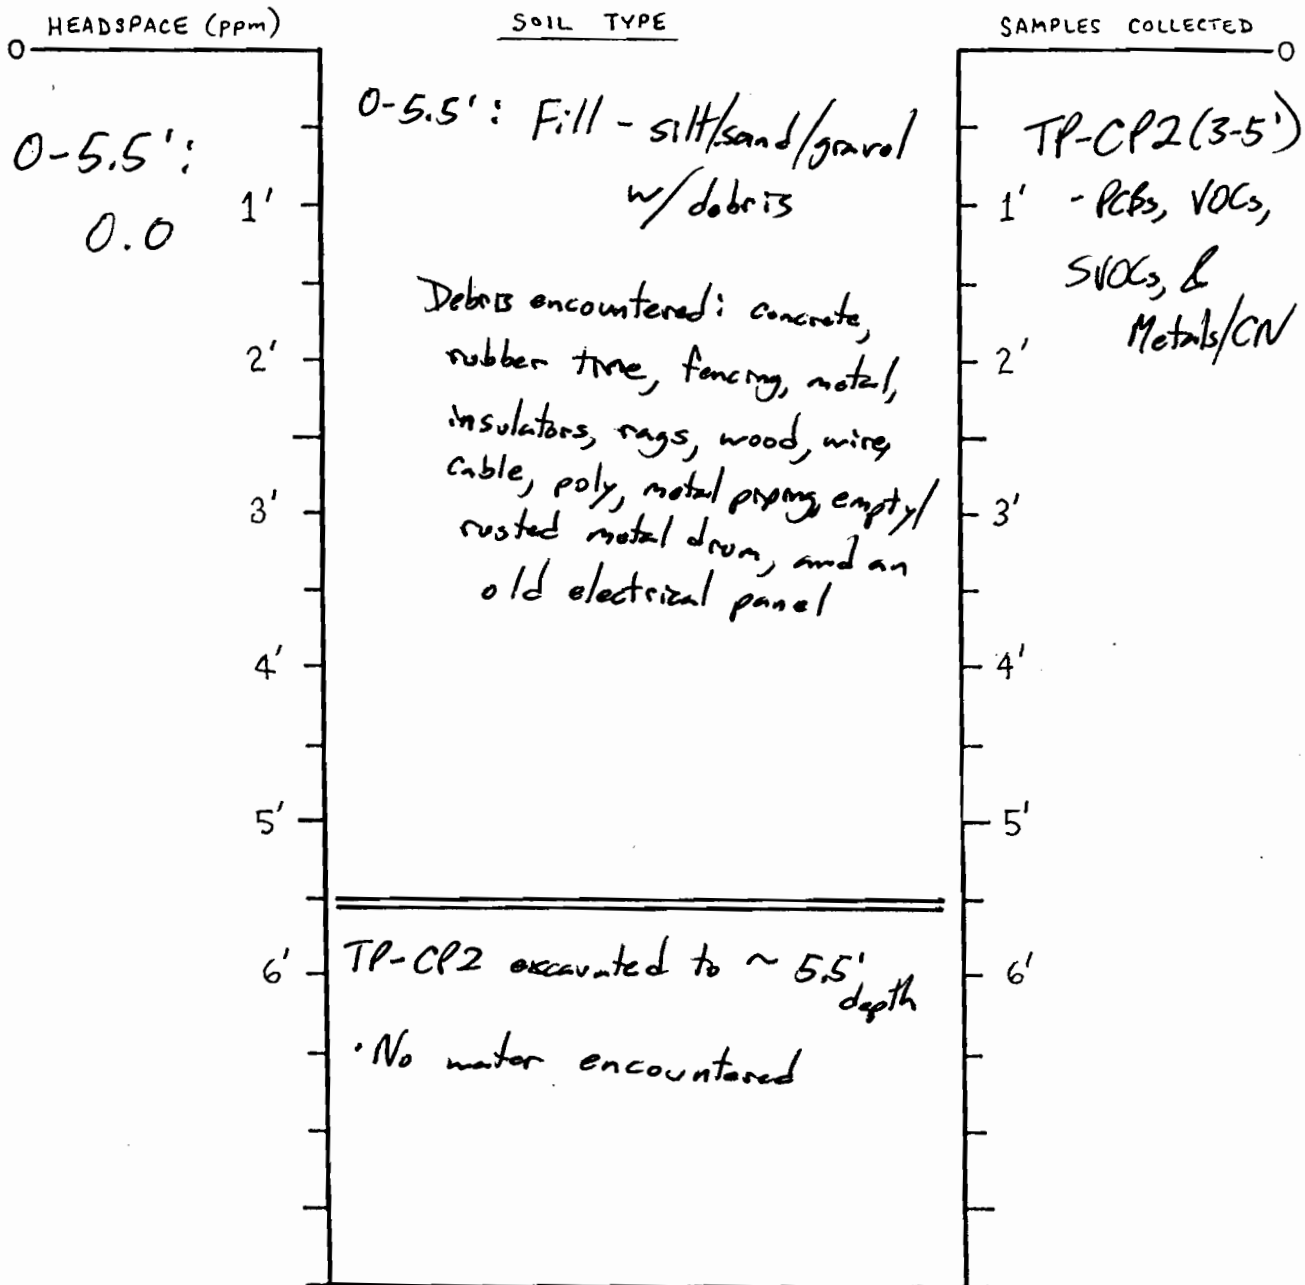 HEADSPACE (ppm)
SOIL TYPE
SAMPLES COLLECTED
0
0
0-5.5':
0.0
1'
2'
3'
4'
5'
6'
0-5.5': Fill - silt/sand/gravel
w/ debris
Debris encountered: concrete,
rubber tire, fencing, metal,
insulators, rags, wood, wire,
cable, poly, metal piping, empty/
rusted metal drum, and an
old electrical panel
TP-CP2 excavated to ~ 5.5'
depth
· No water encountered
TP-CP2 (3-5')
- PCBs, VOCs,
SVOCs, &
Metals/CN
1'
2'
3'
4'
5'
6'